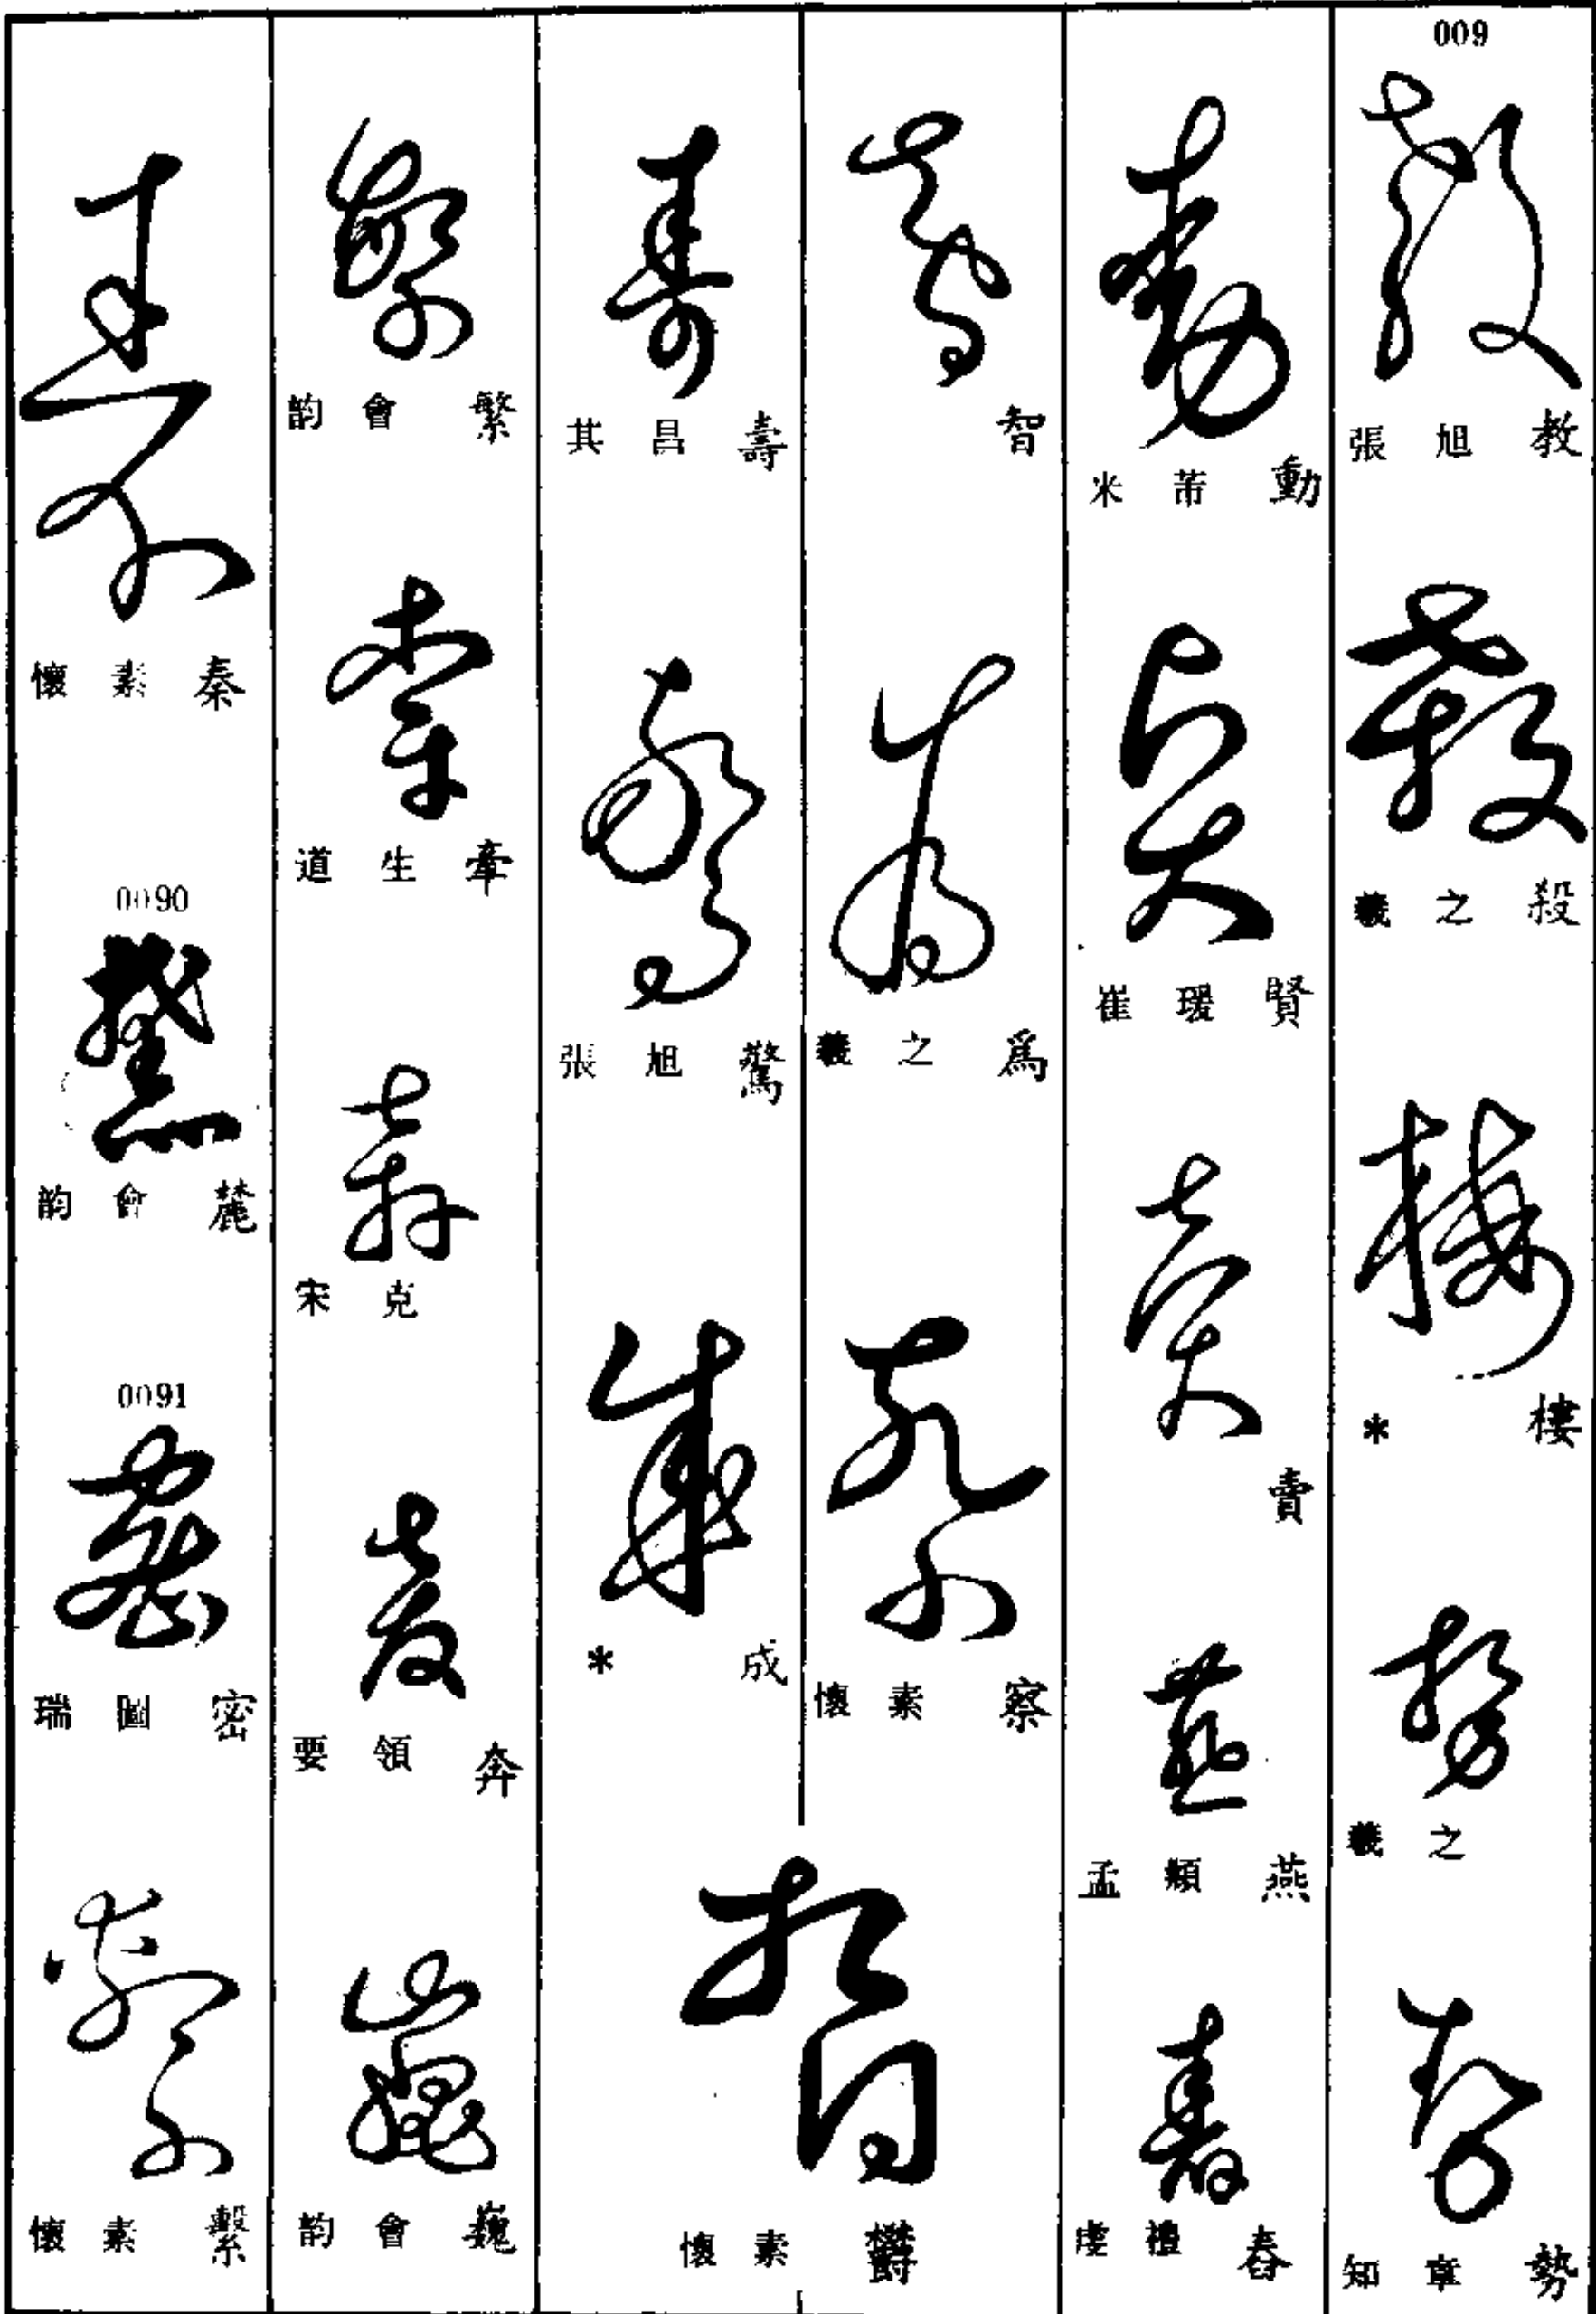 009
張旭 教
羲之 殺
* 樓
羲之
知章 勢
米芾 動
崔瑗 賢
賣
孟頫 燕
虔禮 舂
智
羲之 爲
懷素 察
懷素 鬱
其昌 壽
張旭 驚
* 成
韵會 繁
道生 牽
宋克
要領 奔
韵會 巍
懷素 秦
0090
韵會 麓
0091
瑞圖 密
懷素 繫